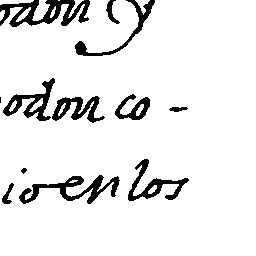 odon y
odon co-
io en los